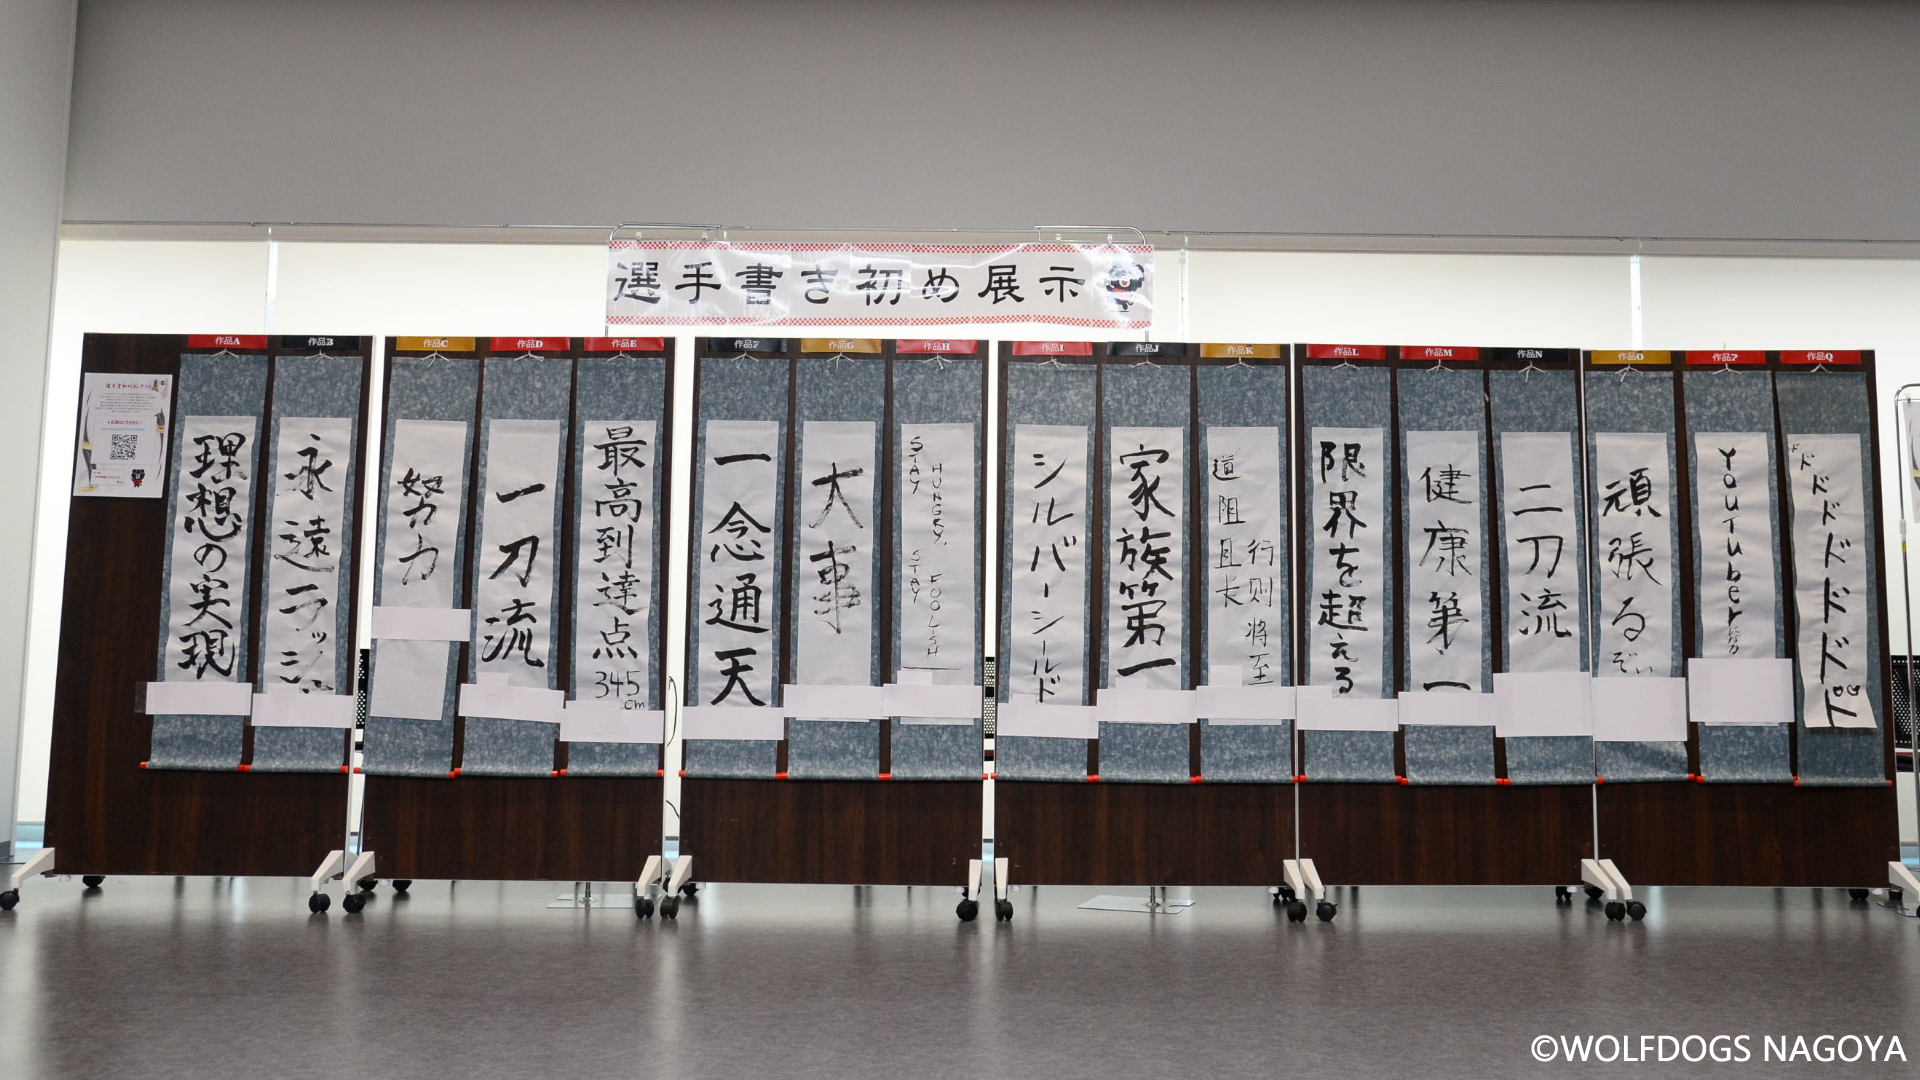 選手書き初め展示
作品A
理想の実現
作品B
永遠ラッシュ
作品C
努力
作品D
一刀流
作品E
最高到達点
345
cm
作品F
一念通天
作品G
大事
作品H
STAY
HUNGRY,
STAY
FOOLISH
作品I
シルバーシールド
作品J
家族第一
作品K
道阻且长
行则将至
作品L
限界を超える
作品M
健康第一
作品N
二刀流
作品O
頑張るぞい
作品P
YouTuber
作品Q
ドドドドドドド
©WOLFDOGS NAGOYA